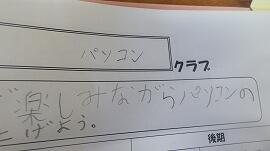 パソコン
クラブ
楽しみながらパソコンの
上げよう。
後期